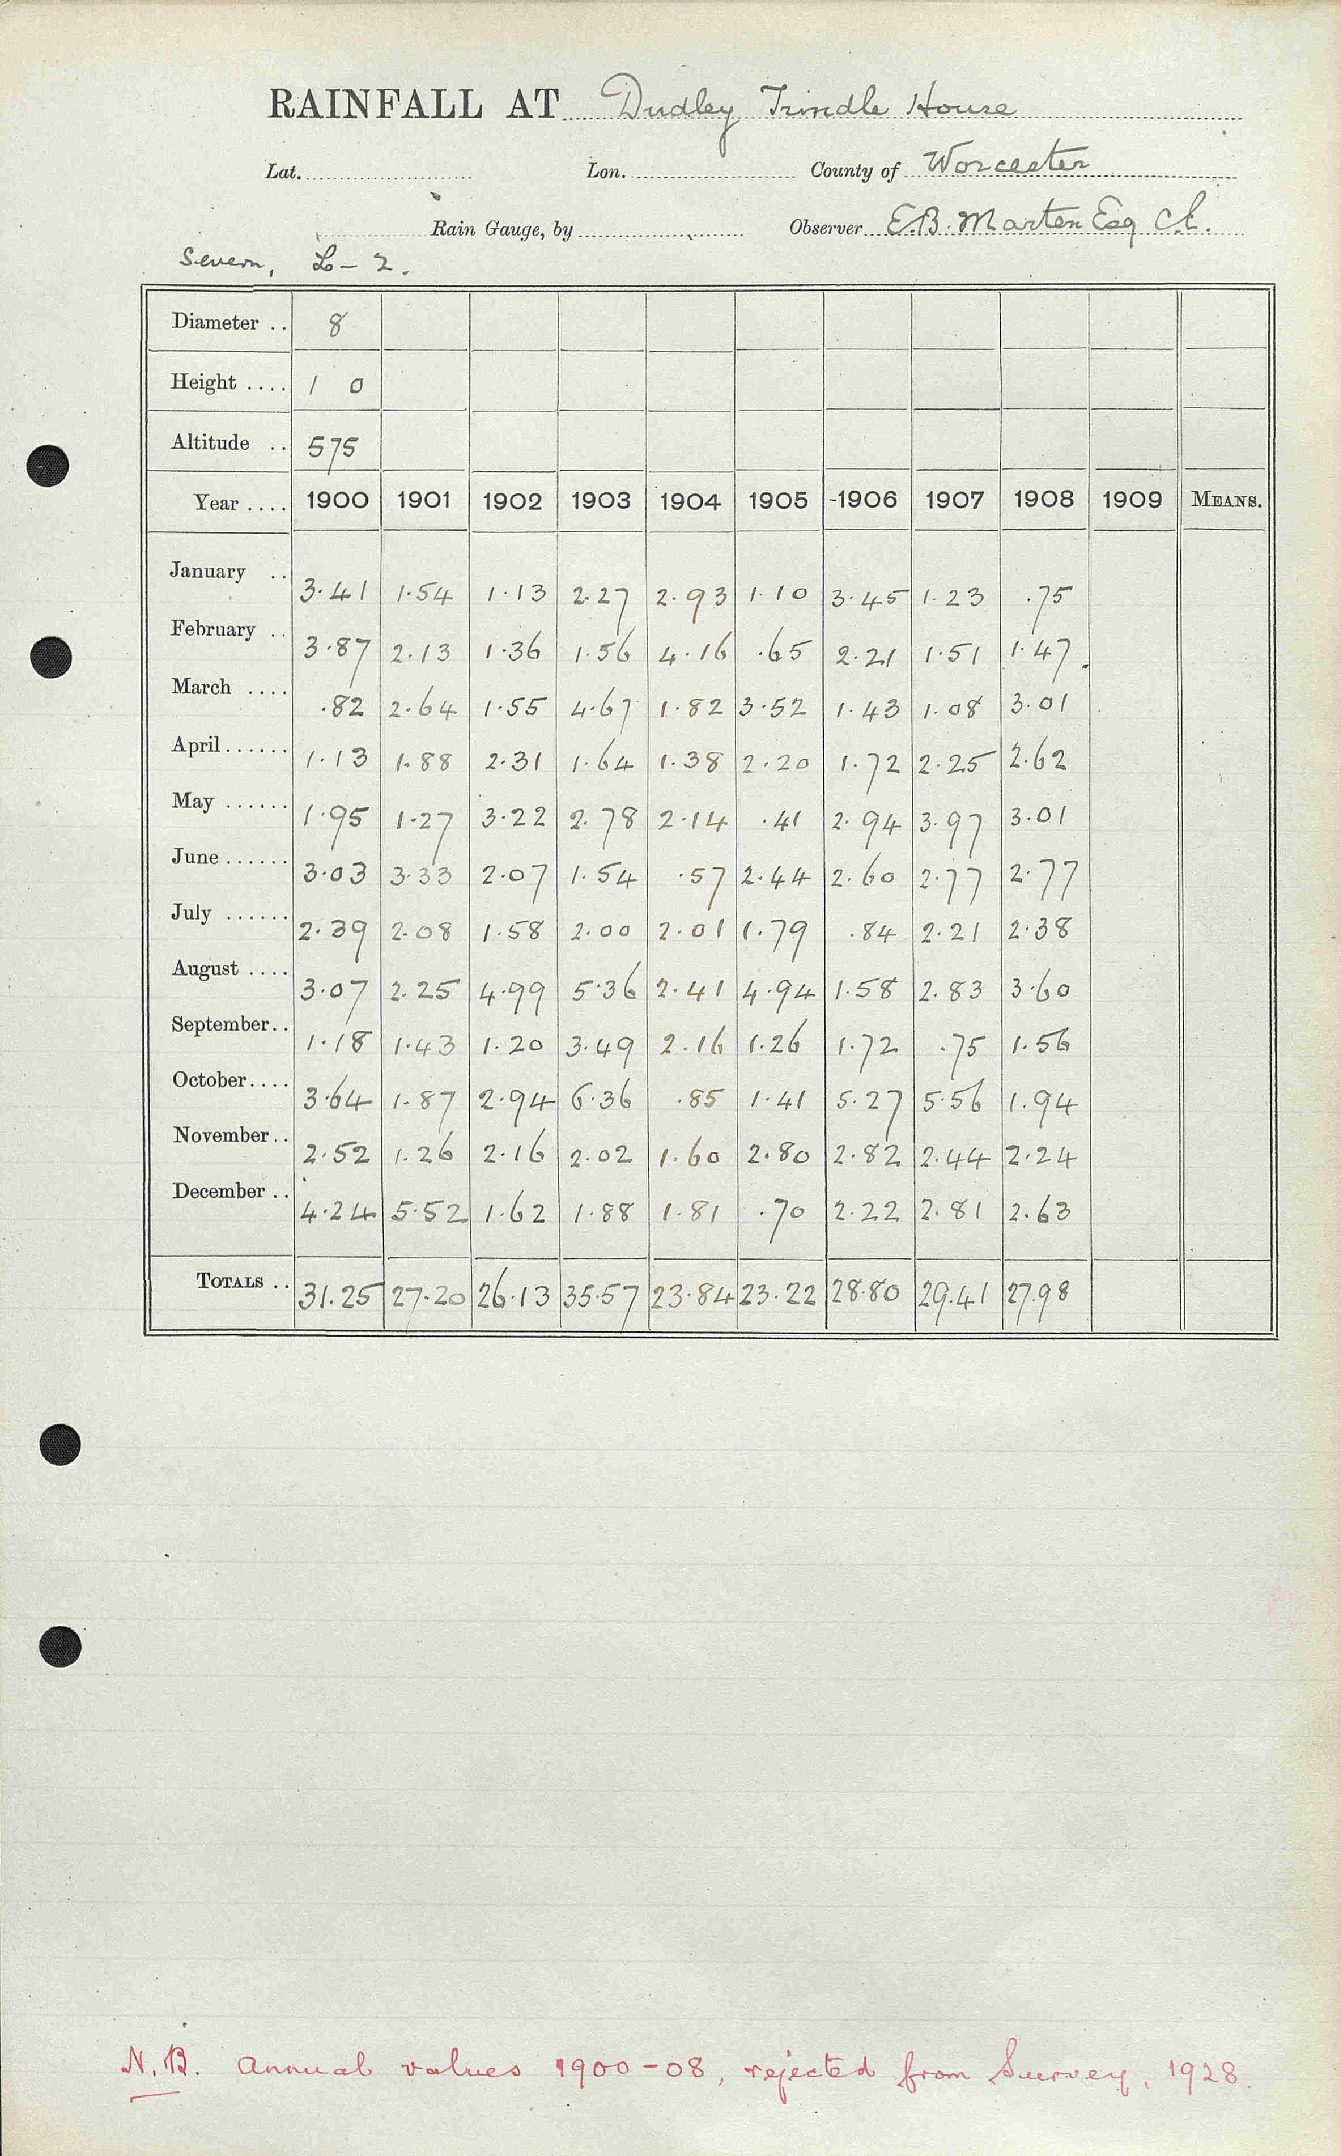 RAINFALL AT Dudley Trindle House
Lat. Lon. County of Worcester
Rain Gauge, by Observer E.B. Marten Esq C.E.
Severn, L-2.
Diameter .. 8
Height .... 1 0
Altitude .. 575
Year .... 1900 1901 1902 1903 1904 1905 1906 1907 1908 1909 MEANS.
January .. 3.41 1.54 1.13 2.27 2.93 1.10 3.45 1.23 .75
February .. 3.87 2.13 1.36 1.56 4.16 .65 2.21 1.51 1.47
March .... .82 2.64 1.55 4.67 1.82 3.52 1.43 1.08 3.01
April...... 1.13 1.88 2.31 1.64 1.38 2.20 1.72 2.25 2.62
May ...... 1.95 1.27 3.22 2.78 2.14 .41 2.94 3.97 3.01
June...... 3.03 3.33 2.07 1.54 .57 2.44 2.60 2.77 2.77
July ...... 2.39 2.08 1.58 2.00 2.01 1.79 .84 2.21 2.38
August .... 3.07 2.25 4.99 5.36 2.41 4.94 1.58 2.83 3.60
September.. 1.18 1.43 1.20 3.49 2.16 1.26 1.72 .75 1.56
October.... 3.64 1.87 2.94 6.36 .85 1.41 5.27 5.56 1.94
November.. 2.52 1.26 2.16 2.02 1.60 2.80 2.82 2.44 2.24
December .. 4.24 5.52 1.62 1.88 1.81 .70 2.22 2.81 2.63
TOTALS .. 31.25 27.20 26.13 35.57 23.84 23.22 28.80 29.41 27.98
N.B. Annual values 1900-08, rejected from Survey, 1928.